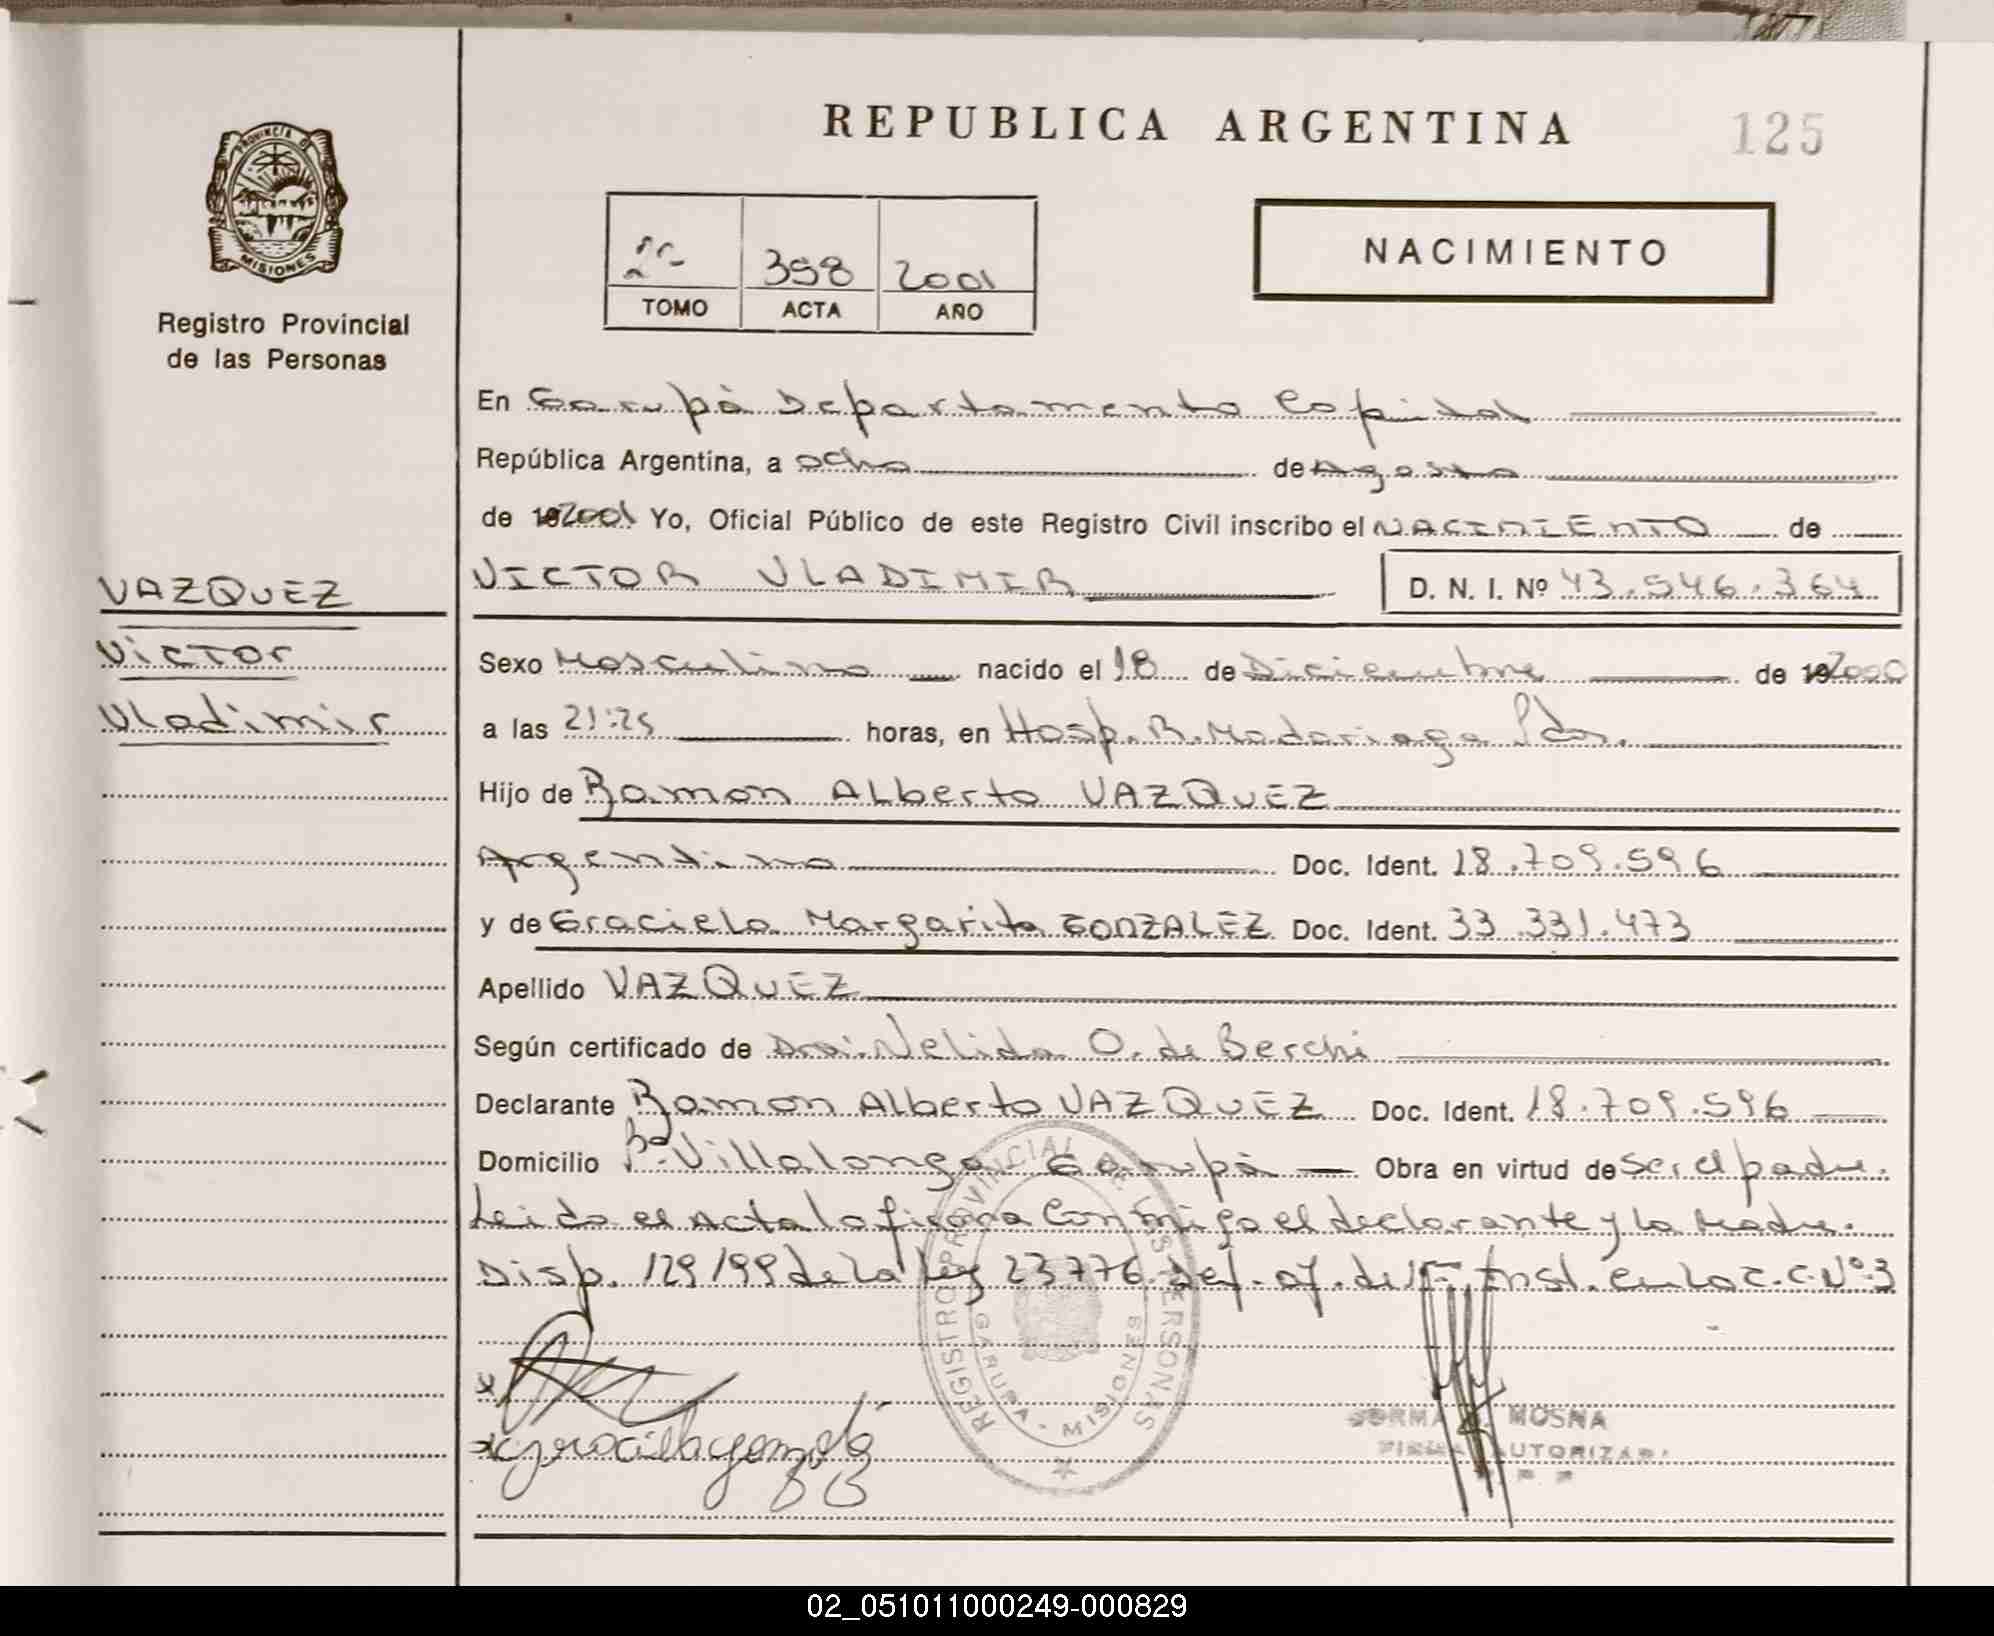 REPUBLICA ARGENTINA
125
PROVINCIA D
MISIONES
Registro Provincial
de las Personas
398 2001
TOMO ACTA AÑO
NACIMIENTO
En Garupá Departamento Capital
República Argentina, a ocho de Agosto
de 192001 Yo, Oficial Público de este Registro Civil inscribo el NACIMIENTO de
VAZQUEZ
Victor
Vladimir
VICTOR VLADIMIR D. N. I. Nº 43.546.364
Sexo Masculino nacido el 18 de Diciembre de 192000
a las 21:25 horas, en Hosp. R. Madariaga Pdas.
Hijo de Ramon Alberto VAZQUEZ
Argentino Doc. Ident. 18.709.596
y de Graciela Margarita GONZALEZ Doc. Ident. 33.331.473
Apellido VAZQUEZ
Según certificado de Dra. Nelida O. de Berchi
Declarante Ramon Alberto VAZQUEZ Doc. Ident. 18.709.596
Domicilio Bº Villalonga Garupá Obra en virtud de ser el padre.
Leido el Acta la firma conmigo el declarante y la Madre.
Disp. 129/99 de la Ley 23776 Def. of. de Inst. en la C.C.Nº3
REGISTRO PROVINCIAL DE LAS PERSONAS
GARUPA - MISIONES
x
x graciela gonzalez
NORMA MOSNA
FIRMA AUTORIZADA
02_051011000249-000829